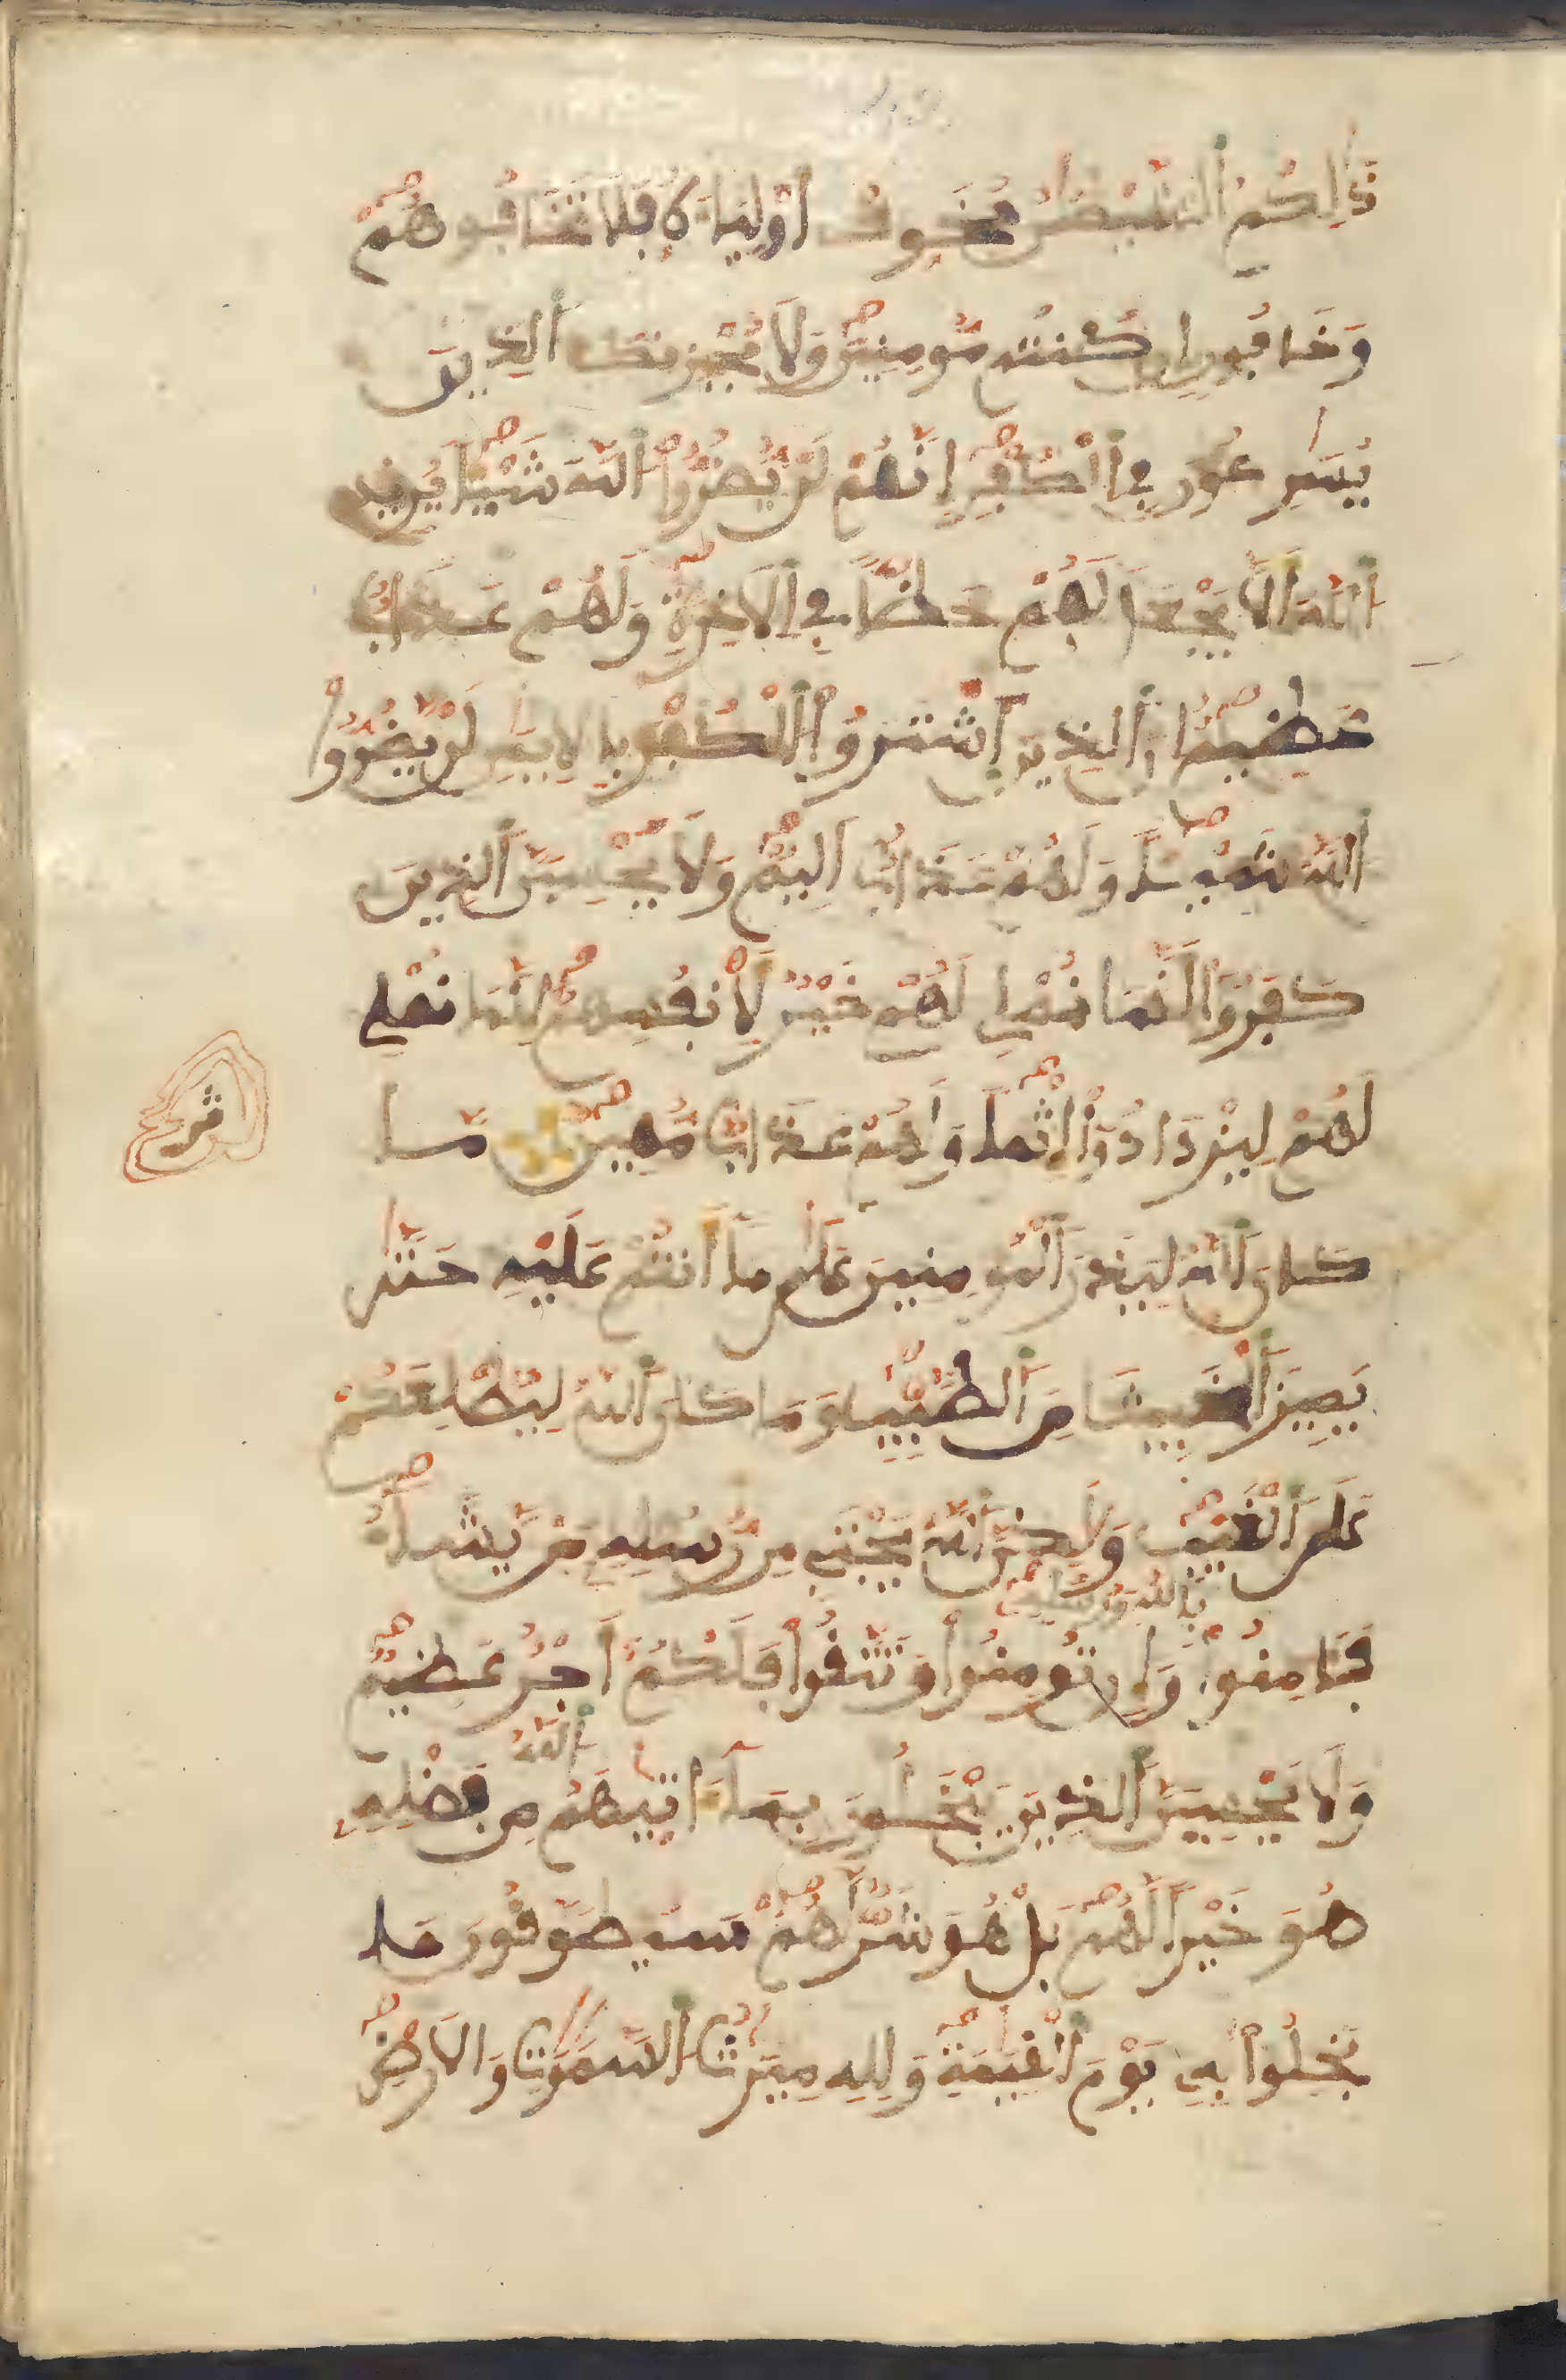 ذَٰلِكُمُ الشَّيْطَٰنُ يُخَوِّفُ أَوْلِيَاءَهُ فَلَا تَخَافُوهُمْ
وَخَافُونِ إِن كُنتُم مُّومِنِينَ وَلَا يُحْزِنكَ الذِينَ
يُسَٰرِعُونَ فِي الْكُفْرِ إِنَّهُمْ لَنْ يَّضُرُّوا اللَّهَ شَيْئًا يُرِيدُ
اللَّهُ أَلَّا يَجْعَلَ لَهُمْ حَظًّا فِي الَاخِرَةِ وَلَهُمْ عَذَابٌ
عَظِيمٌ إِنَّ الذِينَ اشْتَرَوُا الْكُفْرَ بِالِايمَٰنِ لَنْ يَّضُرُّوا
اللَّهَ شَيْئًا وَلَهُمْ عَذَابٌ أَلِيمٌ وَلَا يَحْسِبَنَّ الذِينَ
كَفَرُوا أَنَّمَا نُمْلِي لَهُمْ خَيْرٌ لِّأَنفُسِهِمْ إِنَّمَا نُمْلِي
لَهُمْ لِيَزْدَادُوا إِثْمًا وَلَهُمْ عَذَابٌ مُّهِينٌ مَّا
ثمن
كَانَ اللَّهُ لِيَذَرَ الْمُومِنِينَ عَلَىٰ مَا أَنتُمْ عَلَيْهِ حَتَّىٰ
يَمِيزَ الْخَبِيثَ مِنَ الطَّيِّبِ وَمَا كَانَ اللَّهُ لِيُطْلِعَكُمْ
عَلَى الْغَيْبِ وَلَٰكِنَّ اللَّهَ يَجْتَبِي مِن رُّسُلِهِ مَنْ يَّشَاءُ
فَـَٔامِنُوا بِاللَّهِ وَرُسُلِهِ وَإِن تُومِنُوا وَتَتَّقُوا فَلَكُمْ أَجْرٌ عَظِيمٌ
وَلَا يَحْسِبَنَّ الذِينَ يَبْخَلُونَ بِمَا ءَاتَيٰهُمُ اللَّهُ مِن فَضْلِهِ
هُوَ خَيْرًا لَّهُم بَلْ هُوَ شَرٌّ لَّهُمْ سَيُطَوَّقُونَ مَا
بَخِلُوا بِهِ يَوْمَ الْقِيَٰمَةِ وَلِلهِ مِيرَٰثُ السَّمَٰوَٰتِ وَالَارْضِ